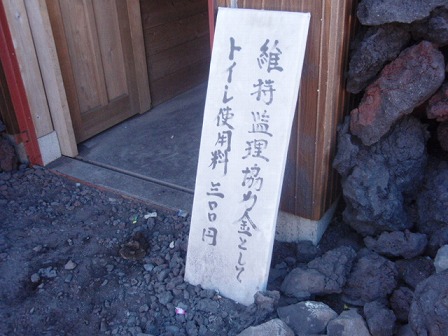 維持監理協力金として
トイレ使用料 三〇〇円